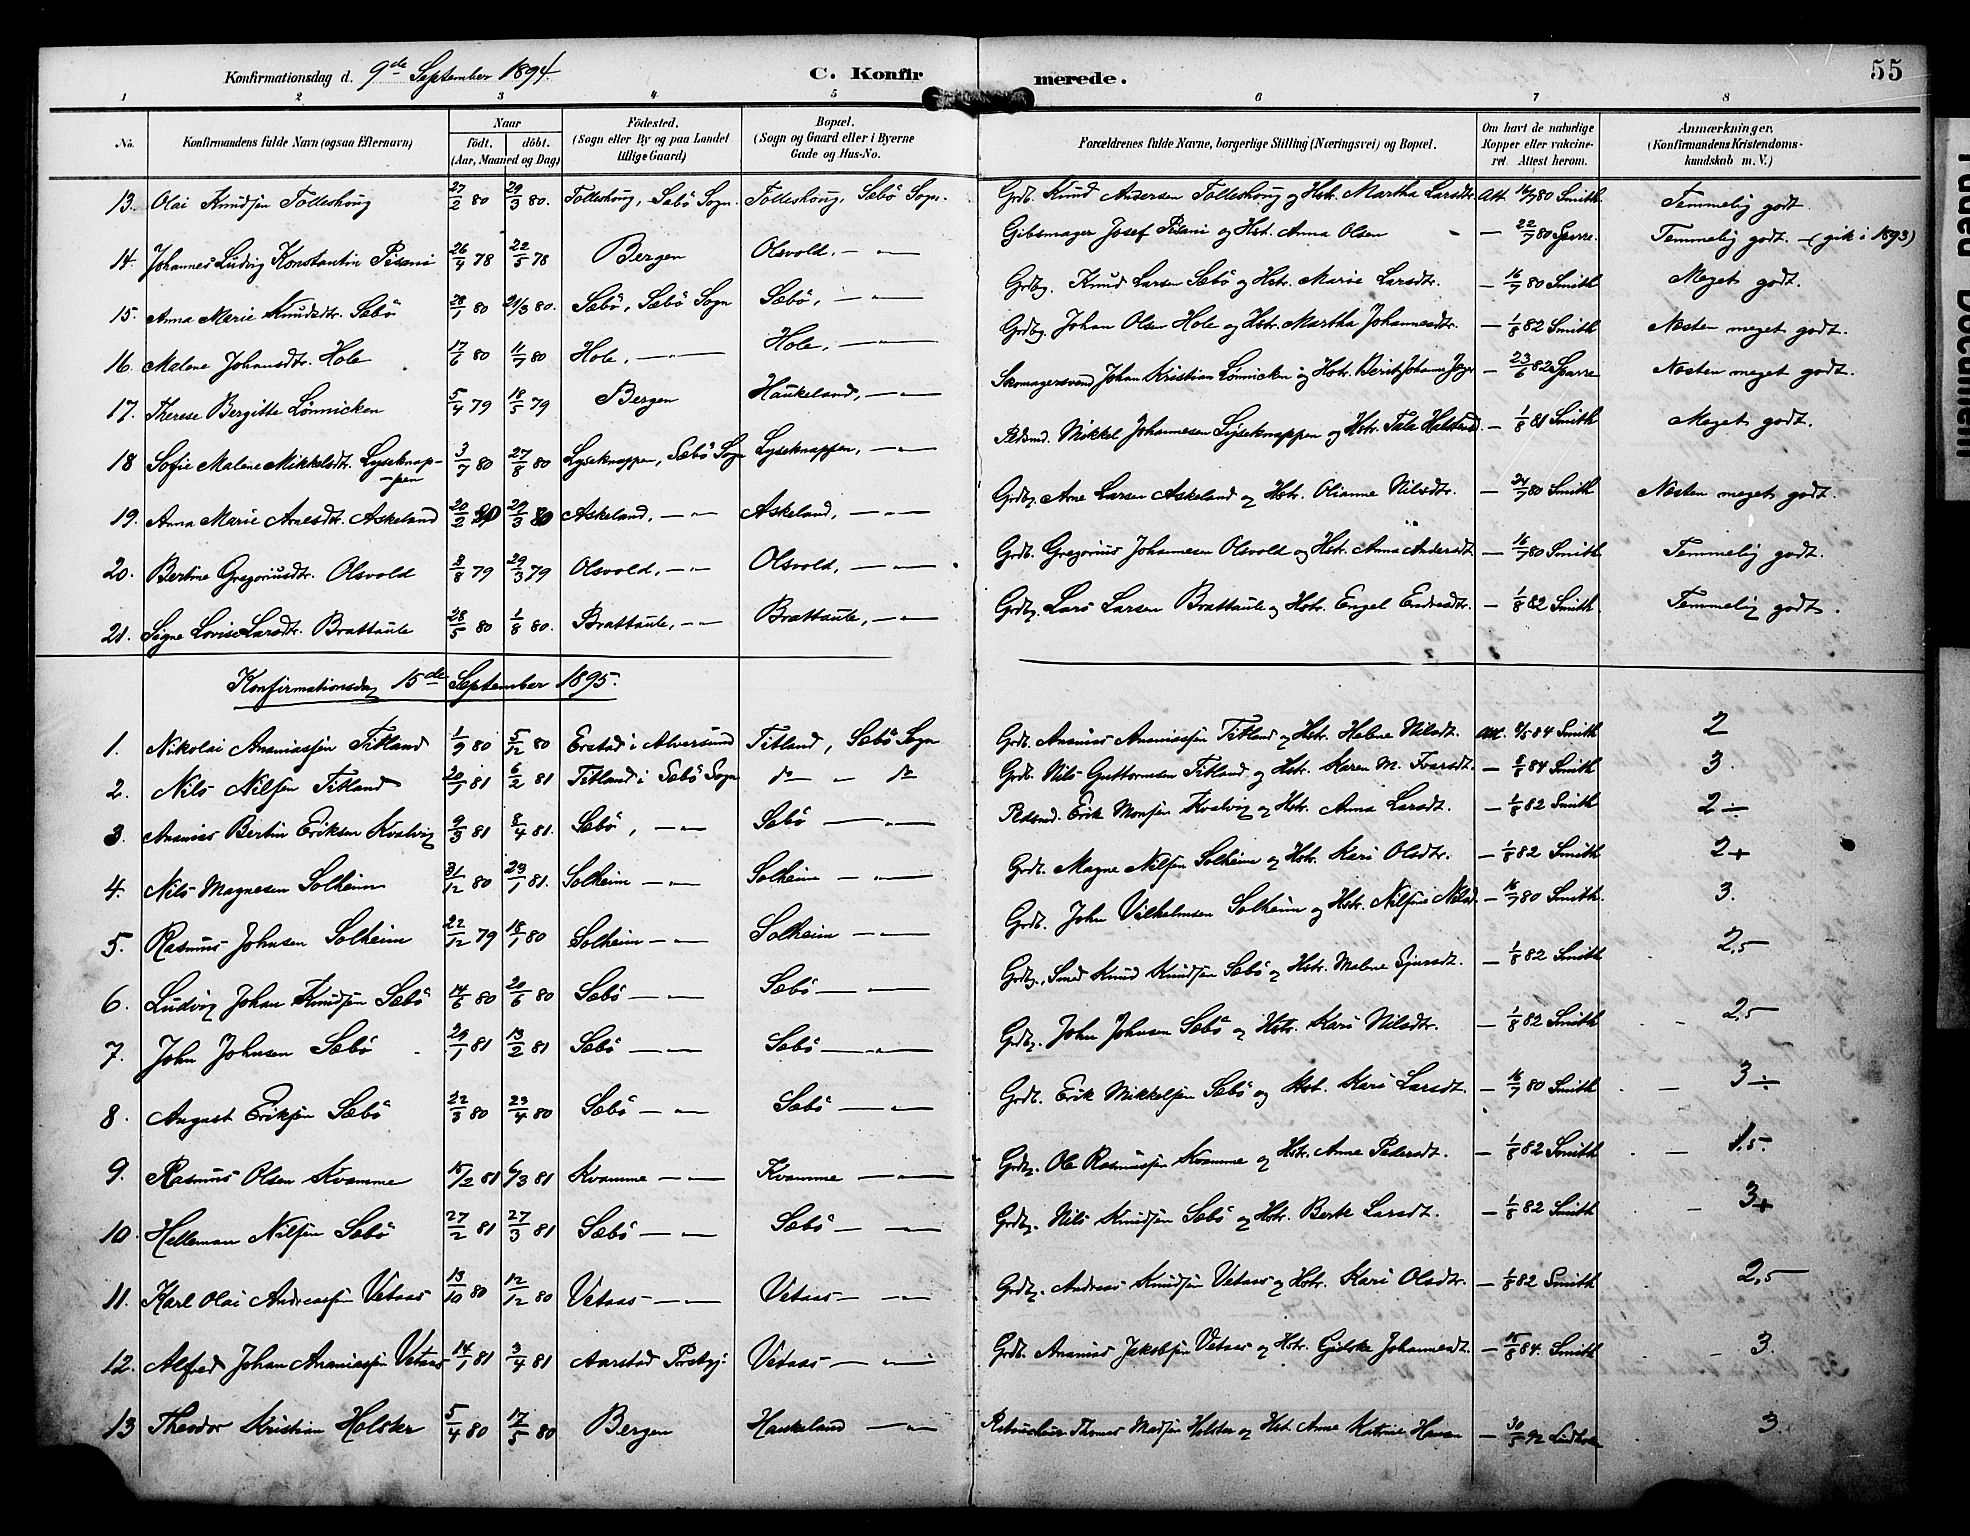 Konfirmationsdag d. 9de September 1894. C. Konfirmerede. 55
1 2 3 4 5 6 7 8
No. Konfirmandens fulde Navn (ogsaa Efternavn) Naar født, døbt. (Aar, Maaned og Dag) Fødested. (Sogn eller By og paa Landet tillige Gaard) Bopæl. (Sogn og Gaard eller i Byerne Gade og Hus-No. Forældrenes fulde Navne, borgerlige Stilling (Næringsvei) og Bopæl. Om havt de naturlige Kopper eller vakcineret. Attest herom. Anmærkninger. (Konfirmandens Kristendomskundskab m. V.)
13. Olai Knudsen Tolleshoug 27/2 80 29/3 80. Tolleshoug, Sæbö Sogn. Tolleshoug, Sæbö Sogn. Grdb. Knud Andersen Tolleshoug og Hstr. Martha Larsdtr. Att 16/7 80 Smith Temmelig godt.
14. Johannes Ludvig Konstantin Pisani 26/4 78 22/5 78 Bergen Olsvold. — " — Gibsmager Josef Pisani og Hst. Anna Olsen — 22/7 80 Sparre. Temmelig godt. — (gik i 1893)
15. Anna Marie Knudsdtr. Sæbö 28/1 80 21/3 80. Sæbö, Sæbö Sogn Sæbö, — " — Grdbg. Knud Larsen Sæbö og Hstr. Marie Larsdtr. — 16/7 80 Smith Meget godt.
16. Malene Johansdtr. Hole 17/6 80 11/7 80 Hole, — " — Hole, — " — Grdbg. Johan Olsen Hole og Hstr. Martha Johannesdtr. — 1/8 82 Smith Næsten meget godt.
17. Therese Bergitte Lönnicken 5/4 79 18/5 79 Bergen Haukeland, — " — Skomagersvend Johan Kristian Lönnicken og Hstr. Berit Johanne — 23/6 82 Sparre Næsten meget godt.
18 Sofie Malene Mikkelsdtr. Lyseknappen 3/7 80 27/8 80 Lyseknappen, Sæbö Sogn Lyseknappen, — " — Pldsmd. Mikkel Johannesen Lyseknappen og Hstr. — 1/8 81 Smith Meget godt.
19. Anna Marie Arnesdtr. Askeland 20/2 80 29/3 80 Askeland, — " — Askeland, — " — Grdbg. Arne Larsen Askeland og Hstr. Olianne Nilsdtr. — 24/7 80 Smith Næsten meget godt.
20. Bertine Gregoriusdtr. Olsvold 2/8 79 29/3 79 Olsvold, — " — Olsvold, — " — Grdb. Gregorius Johannesen Olsvold og Hstr. Anna Andersdt. — 16/7 80 Smith Temmelig godt.
21. Signe Lovise Larsdtr. Brattaule 28/5 80 1/8 80. Brattaule, — " — Brattaule, — " — Grdbg. Lars Larsen Brattaule og Hstr. Engel Endresdtr. — 1/8 82 Smith. Temmelig godt.
Konfirmationsdag 15de September 1895.
1. Nikolai Ananiassen Titland 1/9 80 5/12 80 Erstad i Alversund Titland, Sæbö Sogn Grdb. Ananias Ananiassen Titland og Hstr. Helene Nilsdt. Att. 8/8 84 Smith 2
2. Nils Nilsen Titland 20/1 81 6/2 81 Titland i Sæbö Sogn do — do Grdb. Nils Guttormsen Titland og Hstr. Karen M. Ivarsdt. — 8/8 84 Smith 3.
3. Ananias Bertin Eriksen Kvalvig 9/3 81 8/4 81. Sæbö, — " — Sæbö — " — Pldsmd. Erik Monsen Kvalvig og Hstr. Anna Larsdt. — 1/8 82 Smith 2 ÷
4. Nils Magnesen Solheim 31/12 80 23/1 81. Solheim — " — Solheim — " — Grdb. Magne Nilsen Solheim og Hstr. Kari Olsdtr. — 1/8 82 Smith 2+
5. Rasmus Johnsen Solheim 22/12 79 18/1 80 Solheim — " — Solheim — " — Grdb. John Vilhelmsen Solheim og Hstr. Nilsine Nilsd. — 16/7 80 Smith. 3.
6. Ludvig Johan Knudsen Sæbö 14/6 80 20/6 80 Sæbö — " — Sæbö — " — Grdbg., Smed Knud Knudsen Sæbö og Hstr. Malene Sjursdt. — 1/8 82 Smith 2,5
7. John Johnsen Sæbö 29/1 81 13/2 81 Sæbö — " — Sæbö — " — Grdbg. John Johnsen Sæbö og Hstr. Kari Nilsdtr. — 1/8 82 Smith 2,5
8. August Eriksen Sæbö 22/3 80 23/4 80 Sæbö — " — Sæbö — " — Grdb. Erik Mikkelsen Sæbö og Hst. Kari Larsdt. — 16/7 80 Smith 3 ÷
9. Rasmus Olsen Kvamme 15/2 81 6/3 81 Kvamme — " — Kvamme — " — Grdbg. Ole Rasmussen Kvamme og Hstr. Anne Pedersdt. — 1/8 82 Smith 1,5
10. Helleman Nilsen Sæbö 27/2 81 27/3 81 Sæbö — " — Sæbö — " — Grdbg. Nils Knudsen Sæbö og Hstr. Berte Larsdt. — 1/8 82 Smith 3+
11. Karl Olai Andreassen Vetaas 13/10 80 12/12 80 Vetaas — " — Vetaas — " — Grdbg. Andreas Knudsen Vetaas og Hstr. Kari Olsdtr. — 1/8 82 Smith 2,5
12. Alfred Johan Ananiassen Vetaas 14/1 81 3/4 81 Aarstad Vetaas — " — Grdb. Ananias Jakobsen Vetaas og Hstr. Gjelske Johannesdt. — 15/8 84. Smith 3.
13 Theodor Kristian Holster 5/4 80 17/5 80 Bergen Haukeland — " — Thomas Madsen Holster og Hst. Anne Katrine — 30/5 92 3.